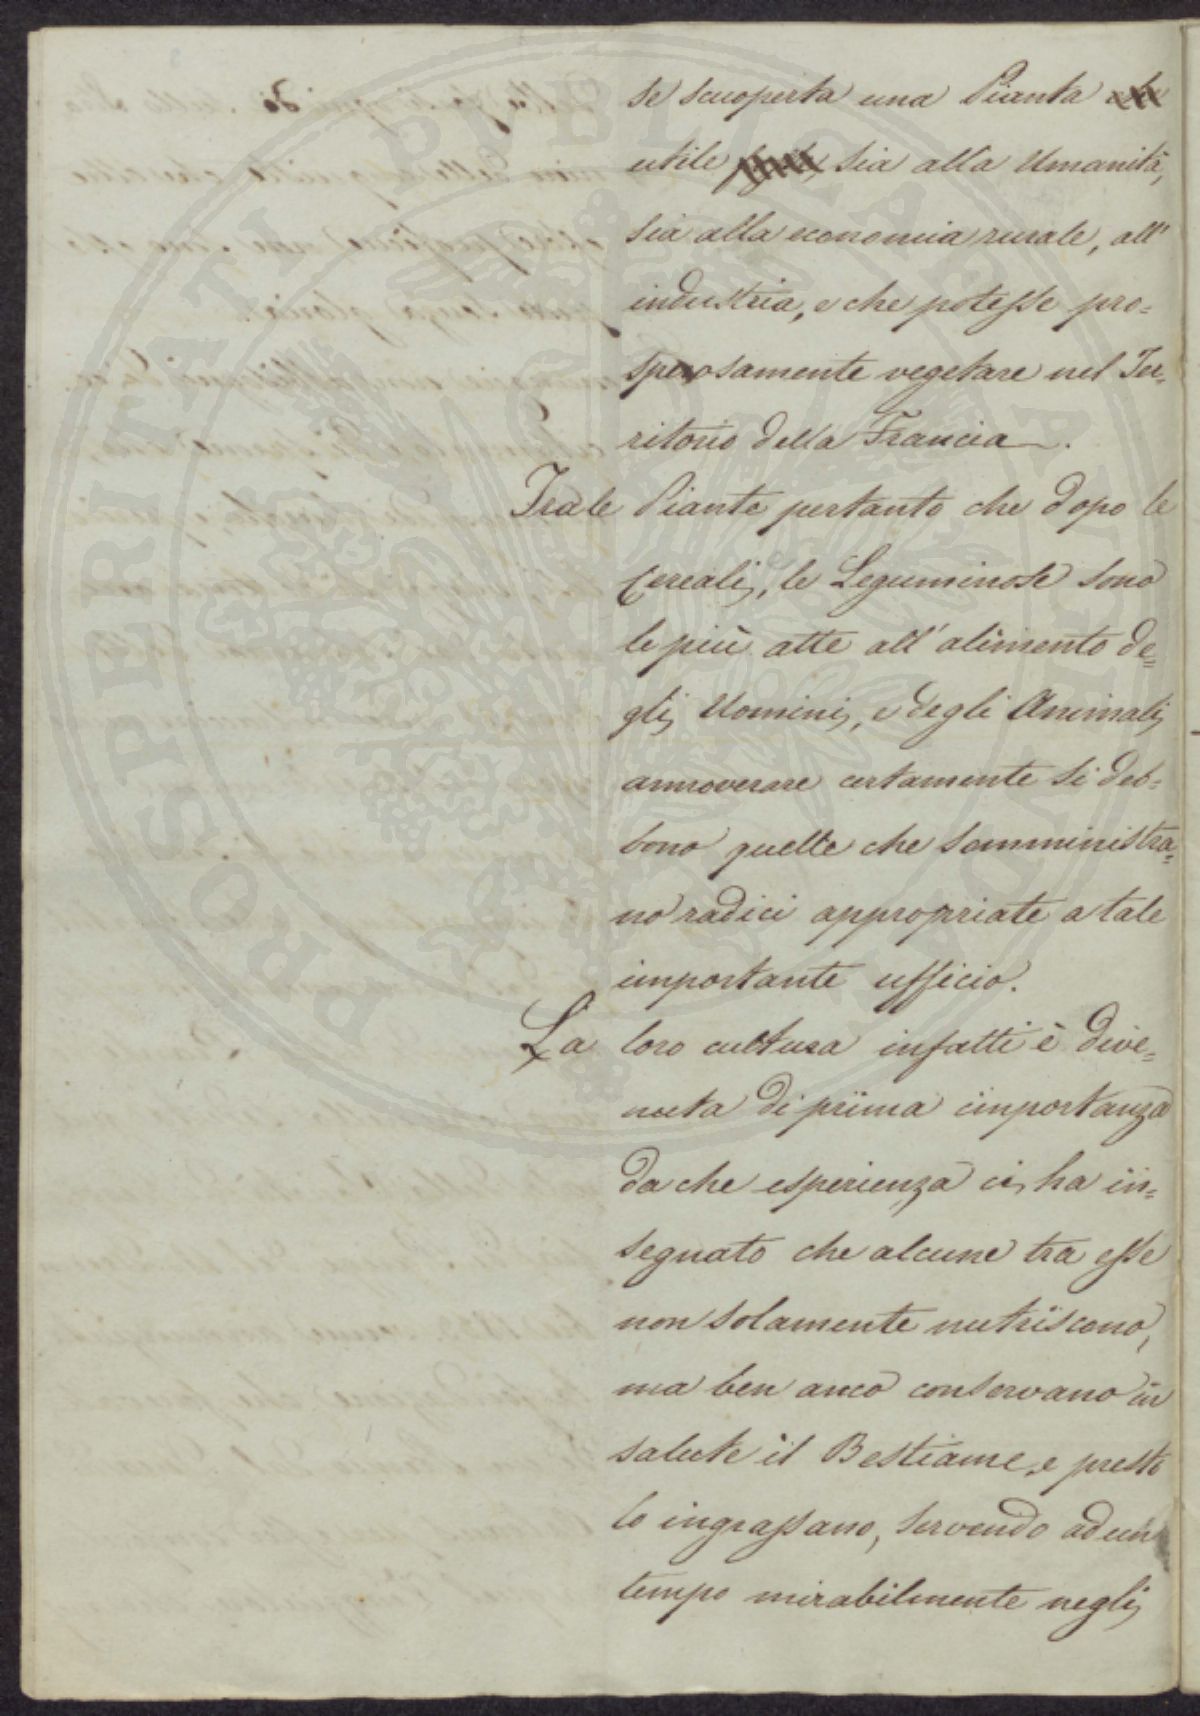 se scuoperta una Pianta
utile sia alla Umanità,
sia alla economia rurale, all'
industria, e che potesse pro=
sperosamente vegetare nel Ter=
ritorio della Francia.
Tra le Piante pertanto che dopo le
Cereali, le Leguminose sono
le più atte all'alimento de=
gli Uomini, e degli Animali
annoverare certamente si deb=
bono quelle che somministra=
no radici appropriate a tale
importante ufficio.
La loro cultura infatti è dive=
nuta di prima importanza
da che esperienza ci ha in=
segnato che alcune tra esse
non solamente nutriscono,
ma ben anco conservano in
salute il Bestiame, e presto
lo ingrassano, servendo ad un
tempo mirabilmente negli
PROSPERITATI PUBLICAE AUGENDAE